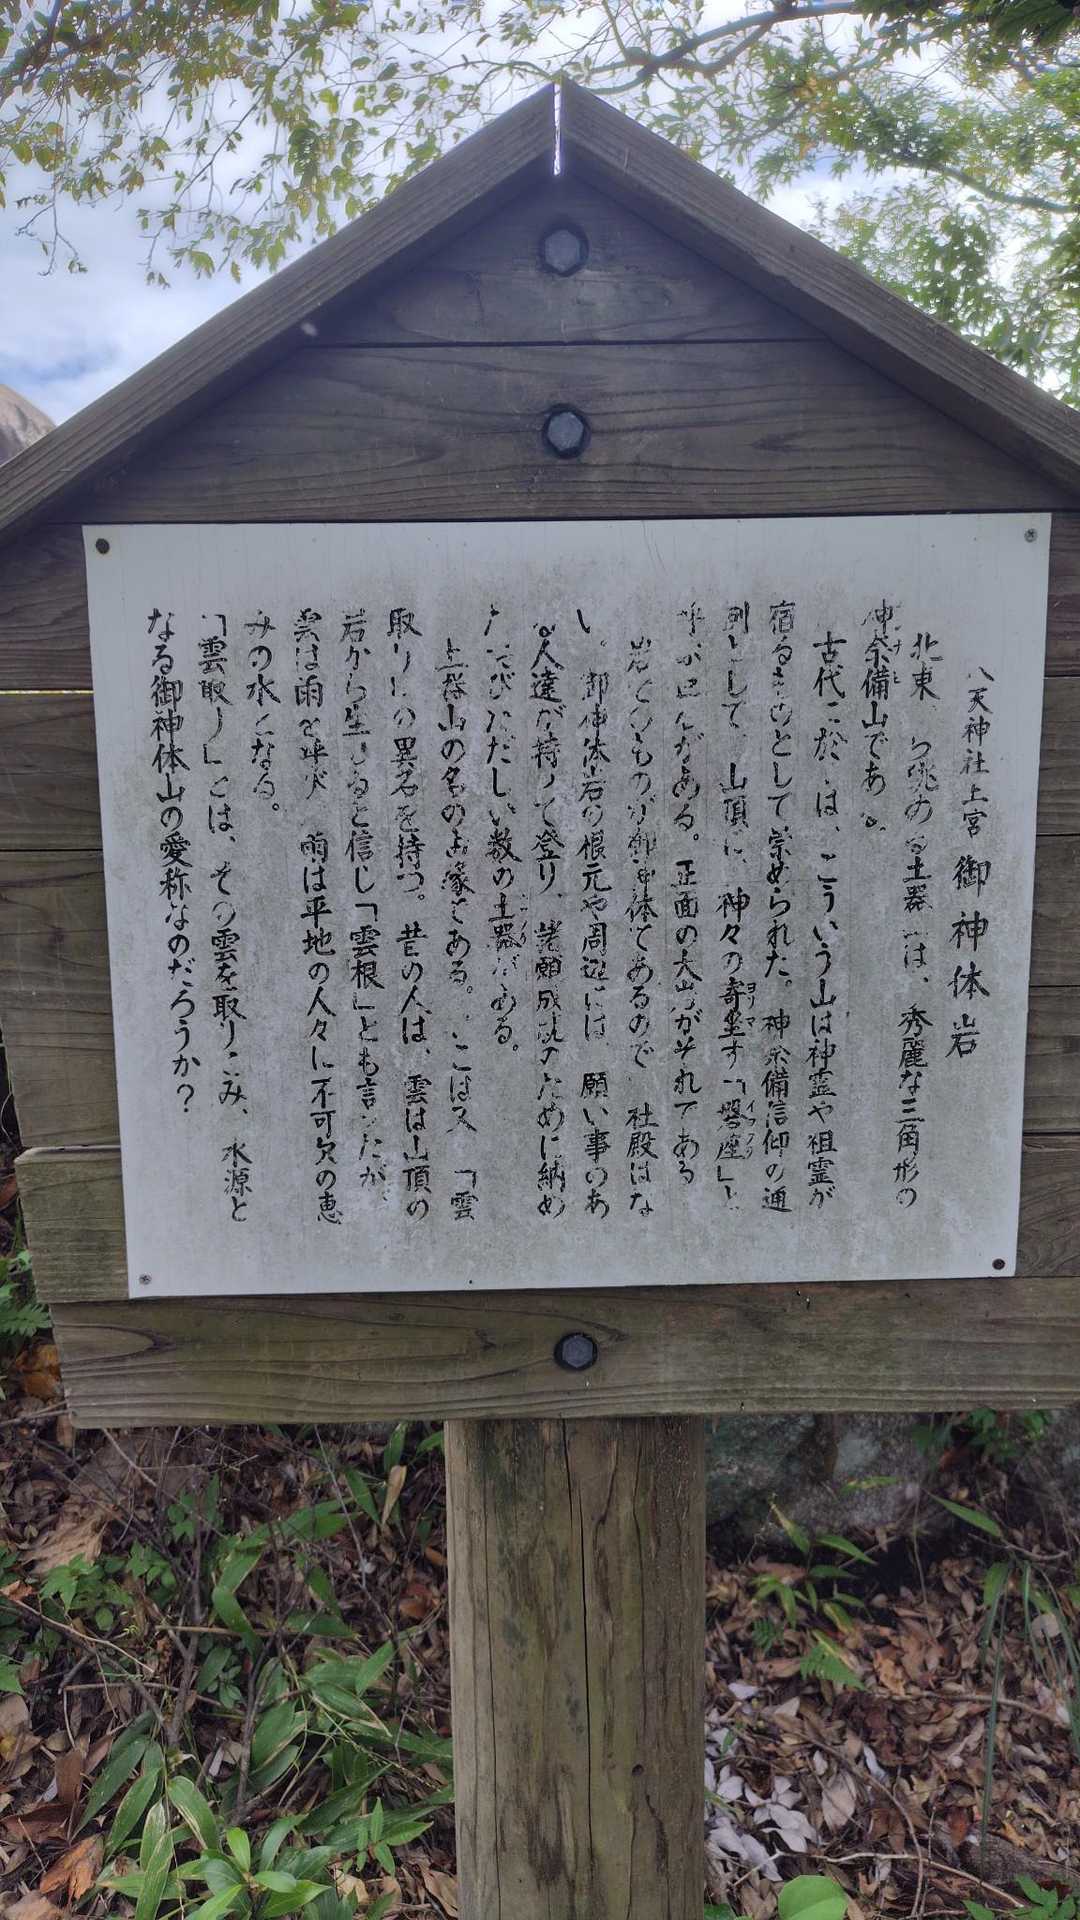 八天神社上宮 御神体岩
北東から眺める土器山は、秀麗な三角形の
神奈備山である。
古代に於ては、こういう山は神霊や祖霊が
宿るものとして崇められた。神奈備信仰の通
則として、山頂に、神々の寄坐す「磐座」と
呼ぶ巨岩がある。正面の大岩がそれである
岩そのものが御神体であるので 社殿はな
い。御神体岩の根元や周辺には、願い事のあ
る人達が持って登り、諸願成就のために納め
たおびただしい数の土器がある。
土器山の名の由縁である。ここは又 「雲
取り」の異名を持つ。昔の人は、雲は山頂の
岩から生じると信じ「雲根」とも言ったが、
雲は雨を呼び 雨は平地の人々に不可欠の恵
みの水となる。
「雲取り」とは、その雲を取りこみ、水源と
なる御神体山の愛称なのだろうか？